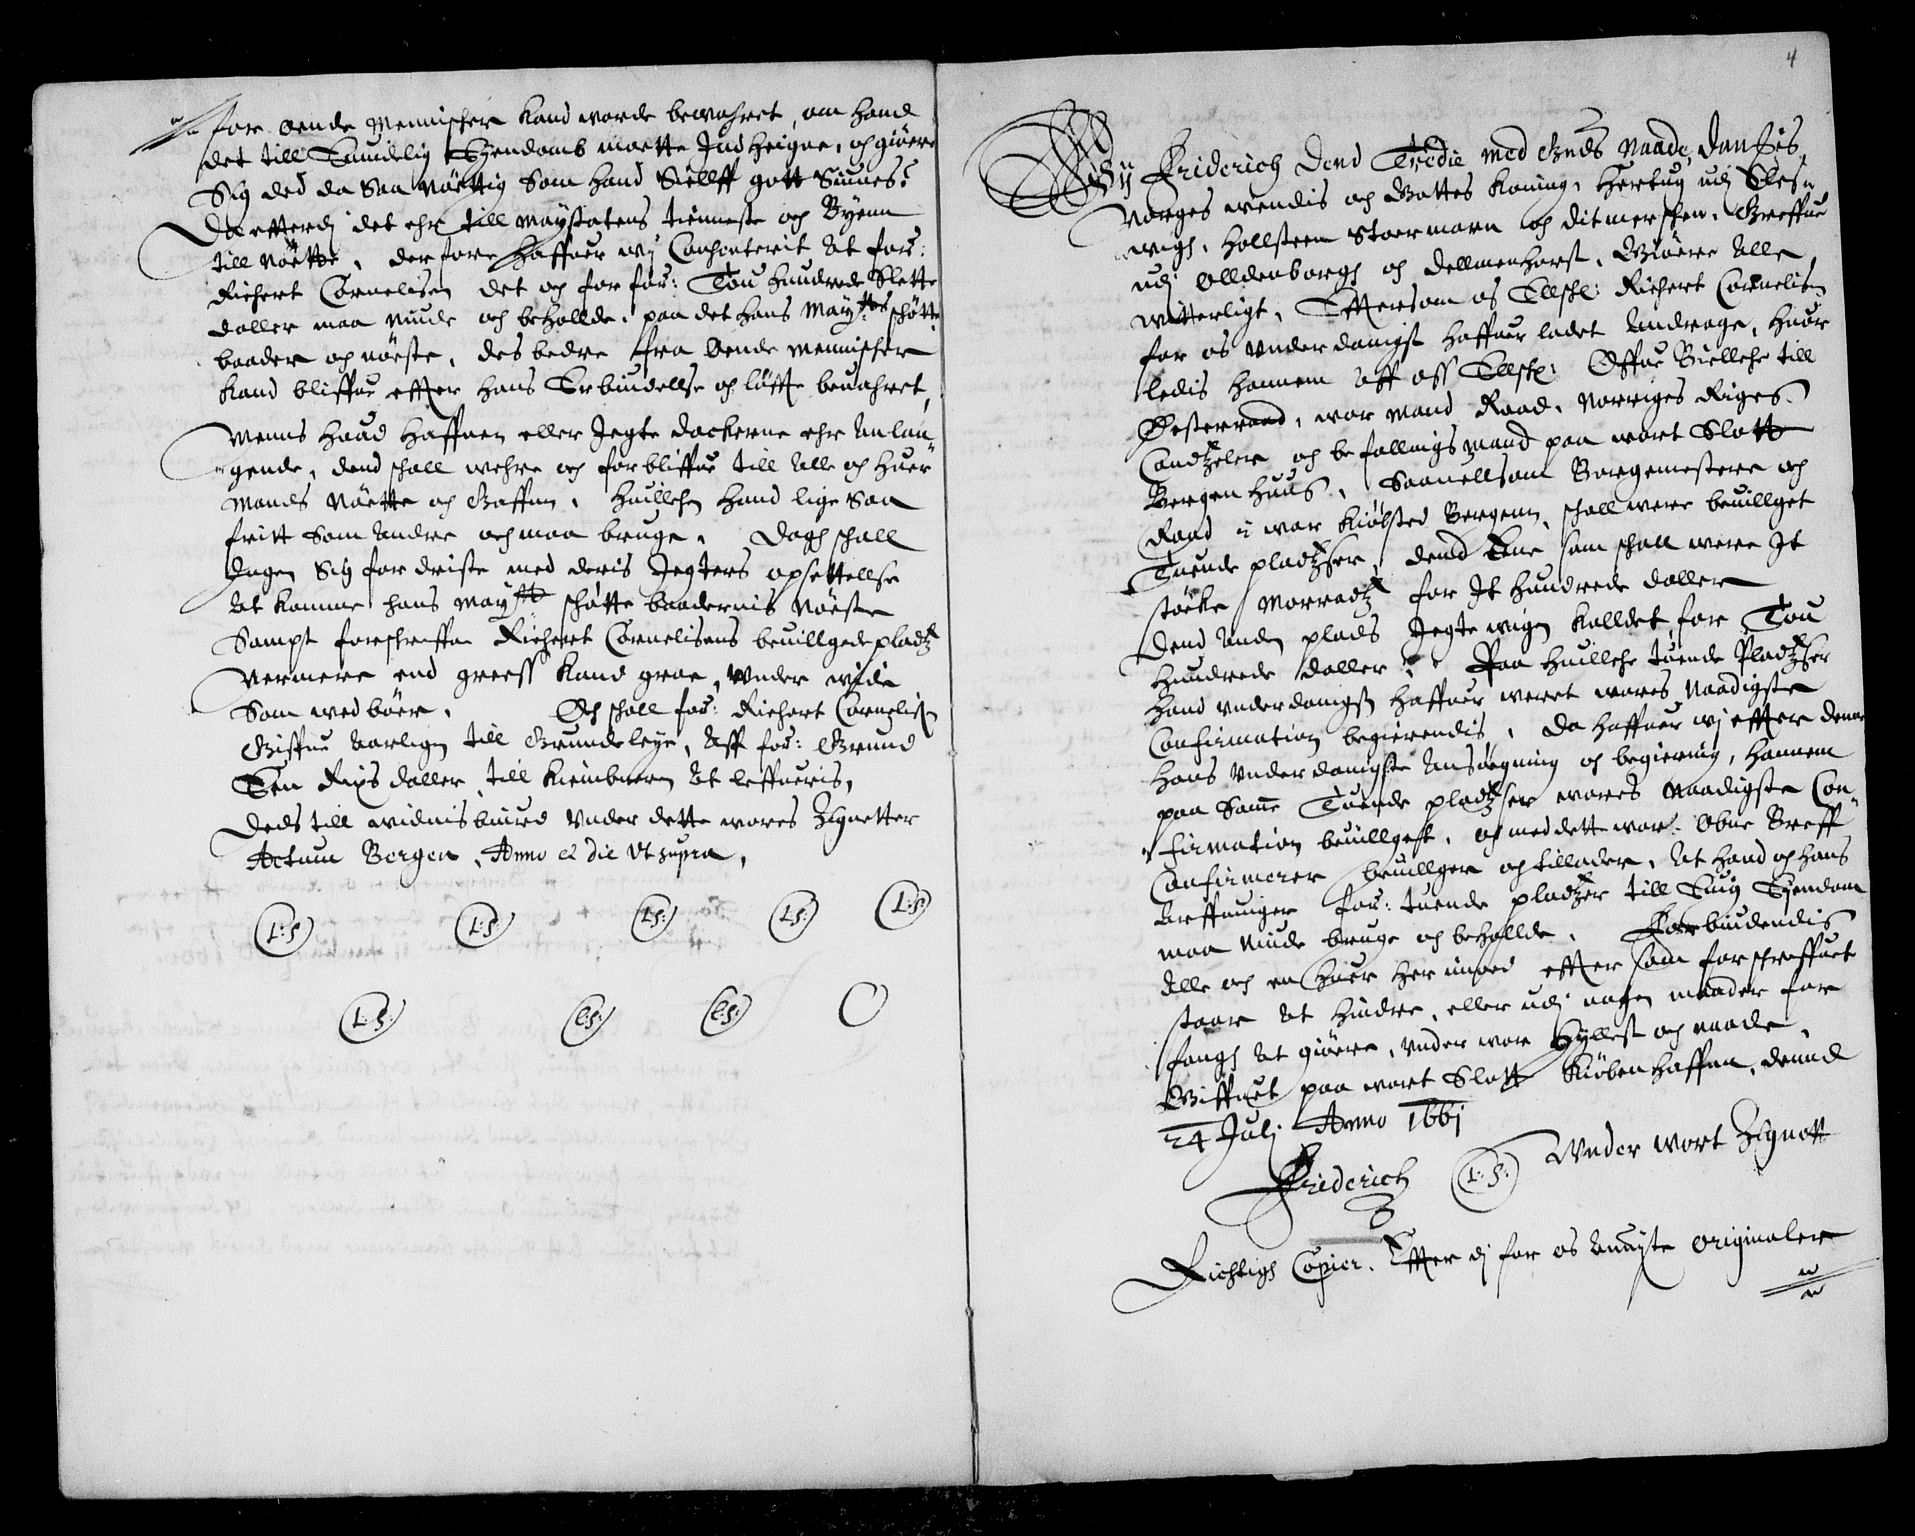 for onde Mennischer kand worde bewahret, om hand
det till Euindelig Eyendomb motte Ind Heigne, och giøre
Sig ded da saa nøttig som hand Siellff gott Siunes:
Da effterdj det ehr till Maystatens tienneste och Byenn
till nøtte, derfore Haffuer wj Conhenterit at for:
Richert Cornelisen det och for for: Tou Hundrede Slette
daller maa niude och beholde, paa det Hans May:tts schøtte
baader och nøeste, des bedre fra onde Mennischer
kand bliffue effter Hans Erbiudellse och løffte beuahret,
Menns Haad Haffnen eller Jegte dockerne ehr anlan-
gende, dend schall wehre och forbliffue till alle och Huer
Mands Nøtte och Gaffen, Huilchen Hand lige saa
fritt som andre och maa bruge, Dogh schall
Ingen Sig fordriste med deris Jegters opsettellse
at komme hans May:tts schøtte baadernis Nøeste
Sampt forschreffne Richert Cornelisens beuillgede pladtz
nermere end greess kand groe, Vnder wide
Som wedbøer. Och schall for: Richert Cornelisen
Giffue aarligen till Grundeleye, aff for: Grund
Een Rixdaller till Kiemneren at leffueris,
Deds till widnisbiurd Vnder dette wores Zignetter
Actum Bergen, Anno et die Vt supra,
L:S: L:S: L:S: L:S: L:S:
L:S: L:S: L:S:
4
Wy Friderich dend Tredie med Guds Naade, Danskes,
Norges Wendis och Gottes Koning, Hertug udj Sles-
wigh, Hollsteen Stoermarn och Ditmerschen, Greffue
udj Olldenborgh och Dellmenhorst, Giøre alle
witterligt, Effersom os Elschl: Richert Cornelisen
for os Vnderdanigst Haffuer ladet andrage, Huor
ledis hannem aff oss Elschl: Offue Bielleche till
Østerraad, wor Mand Raad, Norriges Riges
Candtzeler och befallingsmand paa wort Slott
Bergenhuus, Saauellsom Borgemestere och
Raad i wor Kiøbsted Bergenn, schall were beuillget
Tuende pladtzser, dend Ene som schall were It
støcke Morradtz for It Hundrede daller
Dend anden plads Jegtewigen kalldet for Tou
Hundrede daller: Paa Huilleche tuende Pladtzser
Hand vnderdanigst Haffuer werret wores Naadigste
Confirmation begierendis, Da Haffuer wj effter denne
Hans Vnderdanigste ansøegning och begiering, Hannem
paa Samme Tuende pladtzser wores Naadigste Con-
firmation beuillgett, och med dette wor Obne Breff
Confirmerer beuillger och tillader, at Hand och Hans
Arffuinger for: tuende pladtzer till Euig Eyendom
maa Niude bruge och beholde, Forbiudendis
Alle och en Huer Her imoed effter som forschreffuet
staar at Hindre, eller udj nogen maader for
fangh at giøere, Vnder wor Hyllest och naade,
Giffuet paa wort Slott Kiøbenhaffn, dennd
24 Julj Anno 1661
Vnder wort Zignett
Friderich L:S:
Richtigh Copier. Effter dj for os anuiste originaler